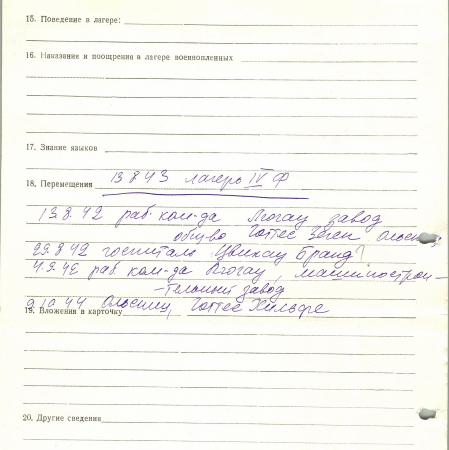 15. Поведение в лагере:
16. Наказания и поощрения в лагере военнопленных
17. Знание языков
18. Перемещения 13 8 43 лагерь IV Ф
13.8.42 раб. ком-да завод
Готтес Зеген
29.8.42 госпиталь Цвикау Бранд
4.9.42 раб ком-да машинострои-
-тельный завод
9.10.44 Готтес Хильфе
19. Вложения в карточку
20. Другие сведения